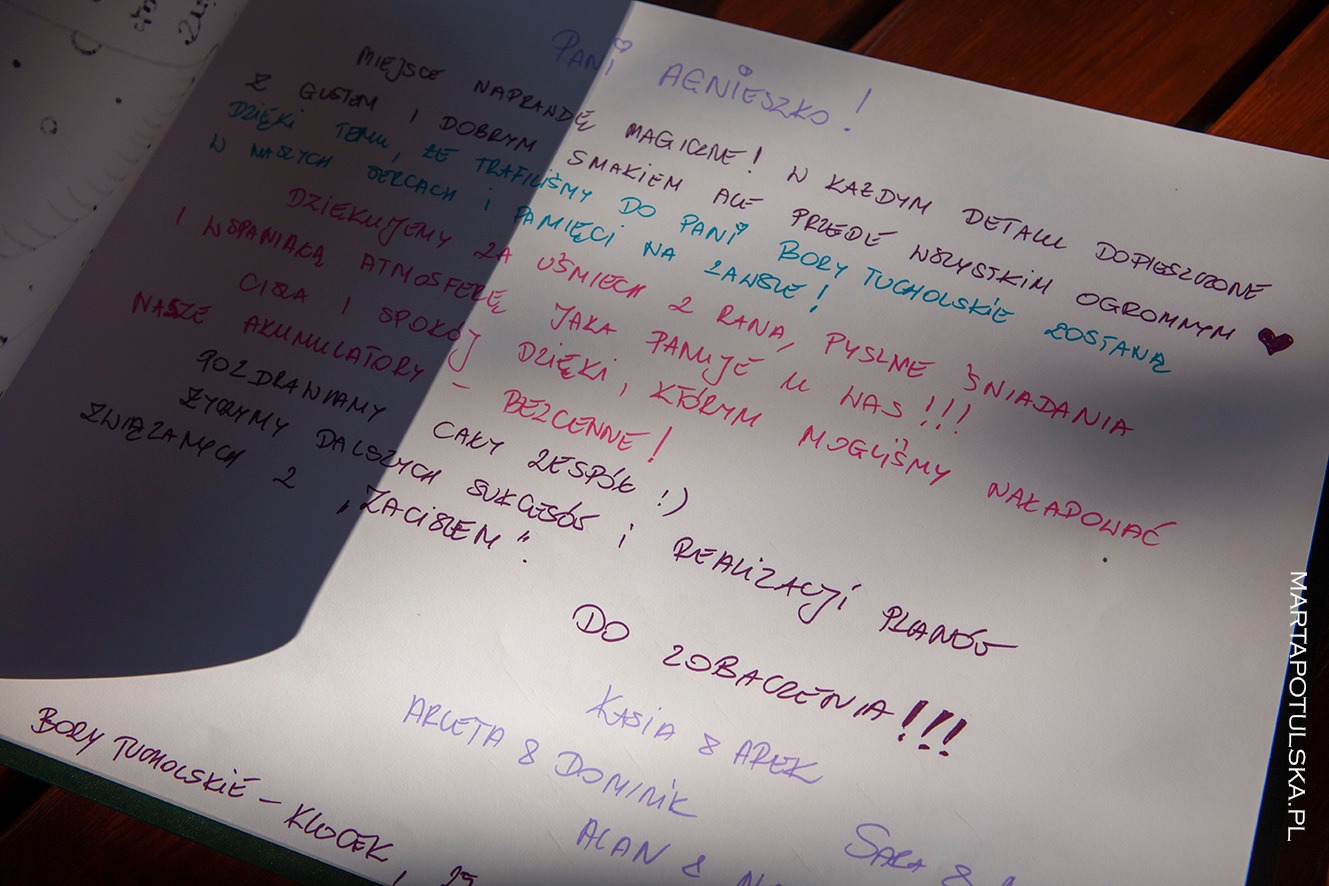 PANI AGNIESZKO!
MIEJSCE NAPRAWDĘ MAGICZNE! W KAŻDYM DETALU DOPIESZCZONE
Z GUSTEM I DOBRYM SMAKIEM ALE PRZEDE WSZYSTKIM OGROMNYM ♥
DZIĘKI TEMU, ŻE TRAFILIŚMY DO PANI BORY TUCHOLSKIE ZOSTANĄ
W NASZYCH SERCACH i PAMIĘCI NA ZAWSZE!
DZIĘKUJEMY ZA UŚMIECH Z RANA, PYSZNE ŚNIADANIA
I WSPANIAŁĄ ATMOSFERĘ JAKA PANUJE U WAS!!!
CISZA I SPOKÓJ DZIĘKI, KTÓRYM MOGLIŚMY NAŁADOWAĆ
NASZE AKUMULATORY - BEZCENNE!
POZDRAWIAMY CAŁY ZESPÓŁ :)
ŻYCZYMY DALSZYCH SUKCESÓW i REALIZACJI PLANÓW
ZWIĄZANYCH Z „ZACISZEM".
DO ZOBACZENIA!!!
KASIA & AREK
ARLETA & DOMINIK
SARA &
ALAN &
BORY TUCHOLSKIE - KLOCEK,
MARTAPOTULSKA.PL